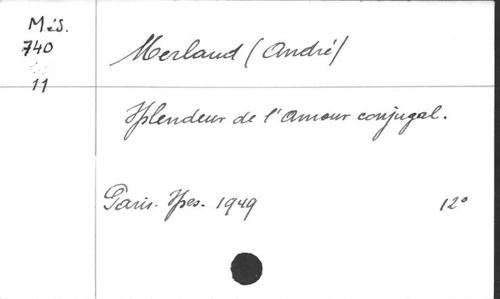 Més.
740
11
Merlaud (André)
Splendeur de l'Amour conjugal.
Paris. Spes. 1949 12°